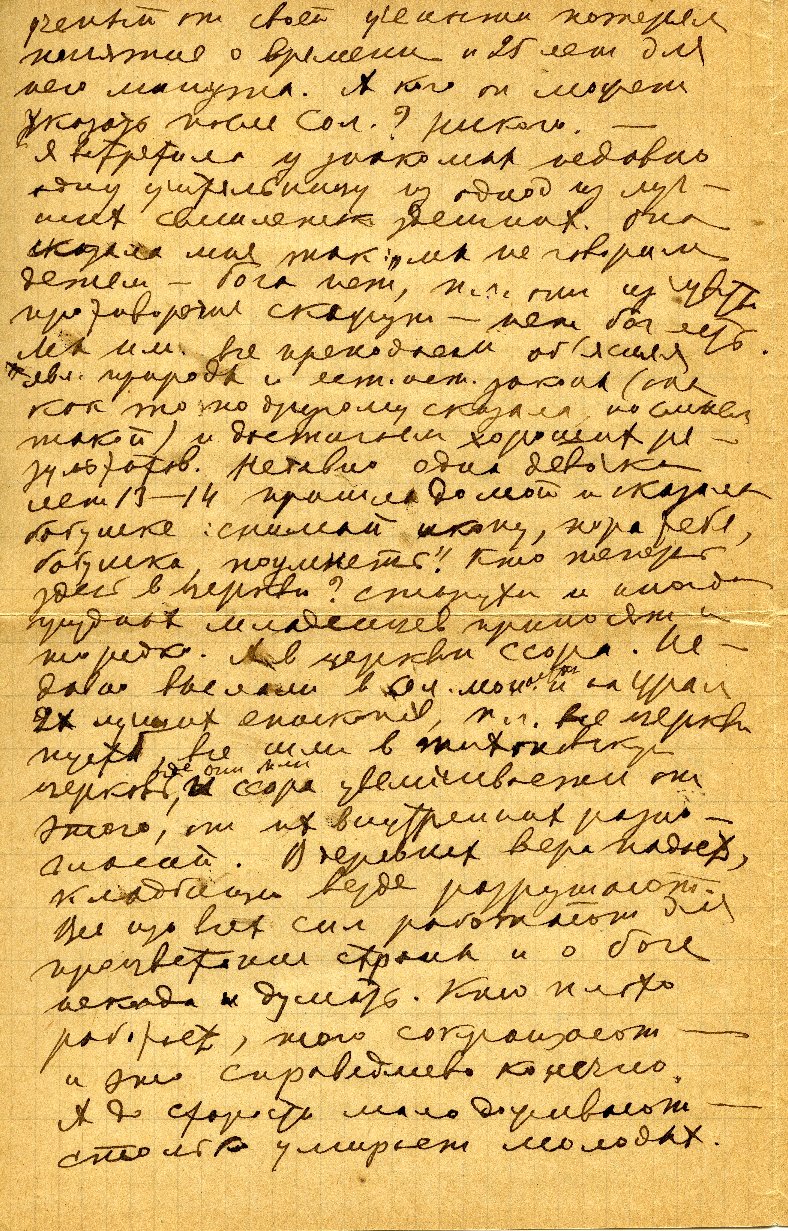 ученый от своей учености потерял
понятие о времени и 25 лет для
него минута. А кого он может
указать после Сол.? никого. —
Я встретила у знакомых недавно
одну учительницу из одной из луч-
ших семилеток здешних. Она
сказала мне так: „мы не говорим
детям — бога нет, п.ч. они из чувства
противоречия скажут — нет бог есть.
Мы им все преподаем объясняя
явл. природы и ест.ист. закона (она
как то по другому сказала, но смысл
такой) и достигаем хороших ре-
зультатов. Недавно одна девочка
лет 13—14 пришла домой и сказала
бабушке: снимай икону, пора тебе,
бабушка, поумнеть"! Кто теперь
здесь в церкви? Старухи и иногда
грудных младенцев приносят и
то редко. А в церкви ссора. Не-
давно выслали в Сол. мон. и на Урал
2х лучших епископов, п.ч. все церкви
пусты, все шли в тихоновскую
церковь, где они были и ссора увеличивается от
этого, от их внутренних разно-
гласий. В деревнях вера падает,
кладбища везде разрушают.
Все изо всех сил работают для
процветания страны и о боге
некогда и думать. Кто плохо
работает, того сокращают —
и это справедливо конечно.
А до старости мало доживают —
столько умирает молодых.